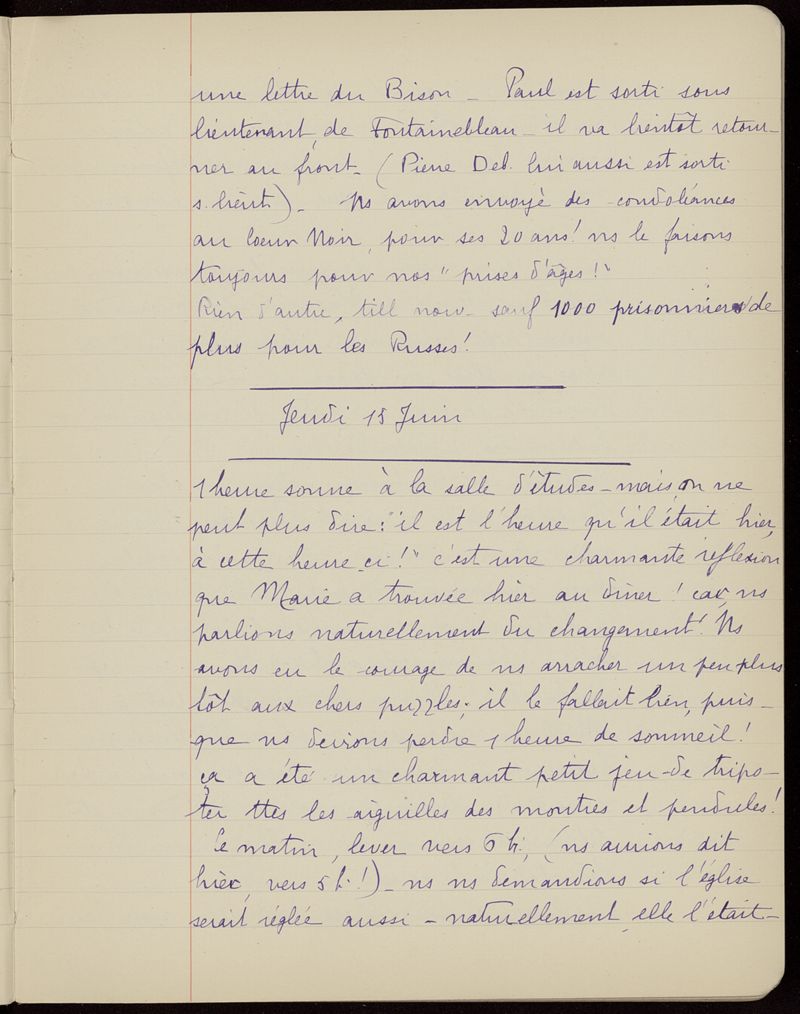 une lettre du Bison _ Paul est sorti sous
lieutenant, de Fontainebleau _ il va bientôt retour-
ner au front _ (Pierre Deb. lui aussi est sorti
s. lieut.) _ Ns avons envoyé des condoléances
au Coeur Noir, pour ses 20 ans! ns le faisons
toujours pour nos "prises d'âges!"
Rien d'autre, till now _ sauf 1000 prisonniers de
plus pour les Russes!
Jeudi 15 Juin
1 heure sonne à la salle d'études _ mais on ne
peut plus dire: "il est l'heure qu'il était hier,
à cette heure ci!" c'est une charmante réflexion
que Marie a trouvée hier au dîner! car ns
parlions naturellement du changement! Ns
avons eu le courage de ns arracher un peu plus
tôt aux chers puzzles; il le fallait bien, puis-
que ns devions perdre 1 heure de sommeil!
ça a été un charmant petit jeu _ de tripo-
ter ttes les aiguilles des montres et pendules!
Ce matin, lever vers 6 h., (ns aurions dit
hier, vers 5 h.!) _ ns ns demandions si l'église
serait réglée aussi _ naturellement, elle l'était _